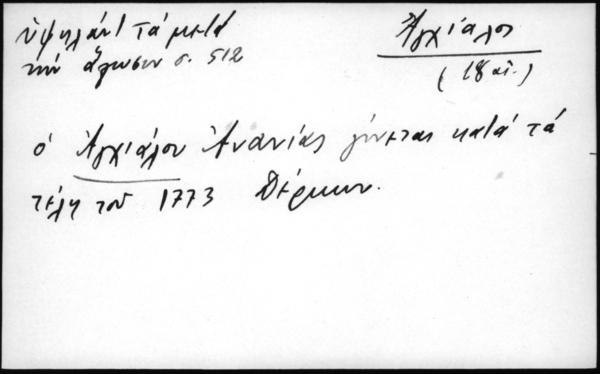 Ὑψηλάντ τά μετά
τήν ἅλωσιν σ. 512
Ἀγχίαλος
(18 αἰ.)
ὁ Ἀγχιάλου Ἀνανίας γίνεται κατά τά
τέλη τοῦ 1773 Δέρκων.